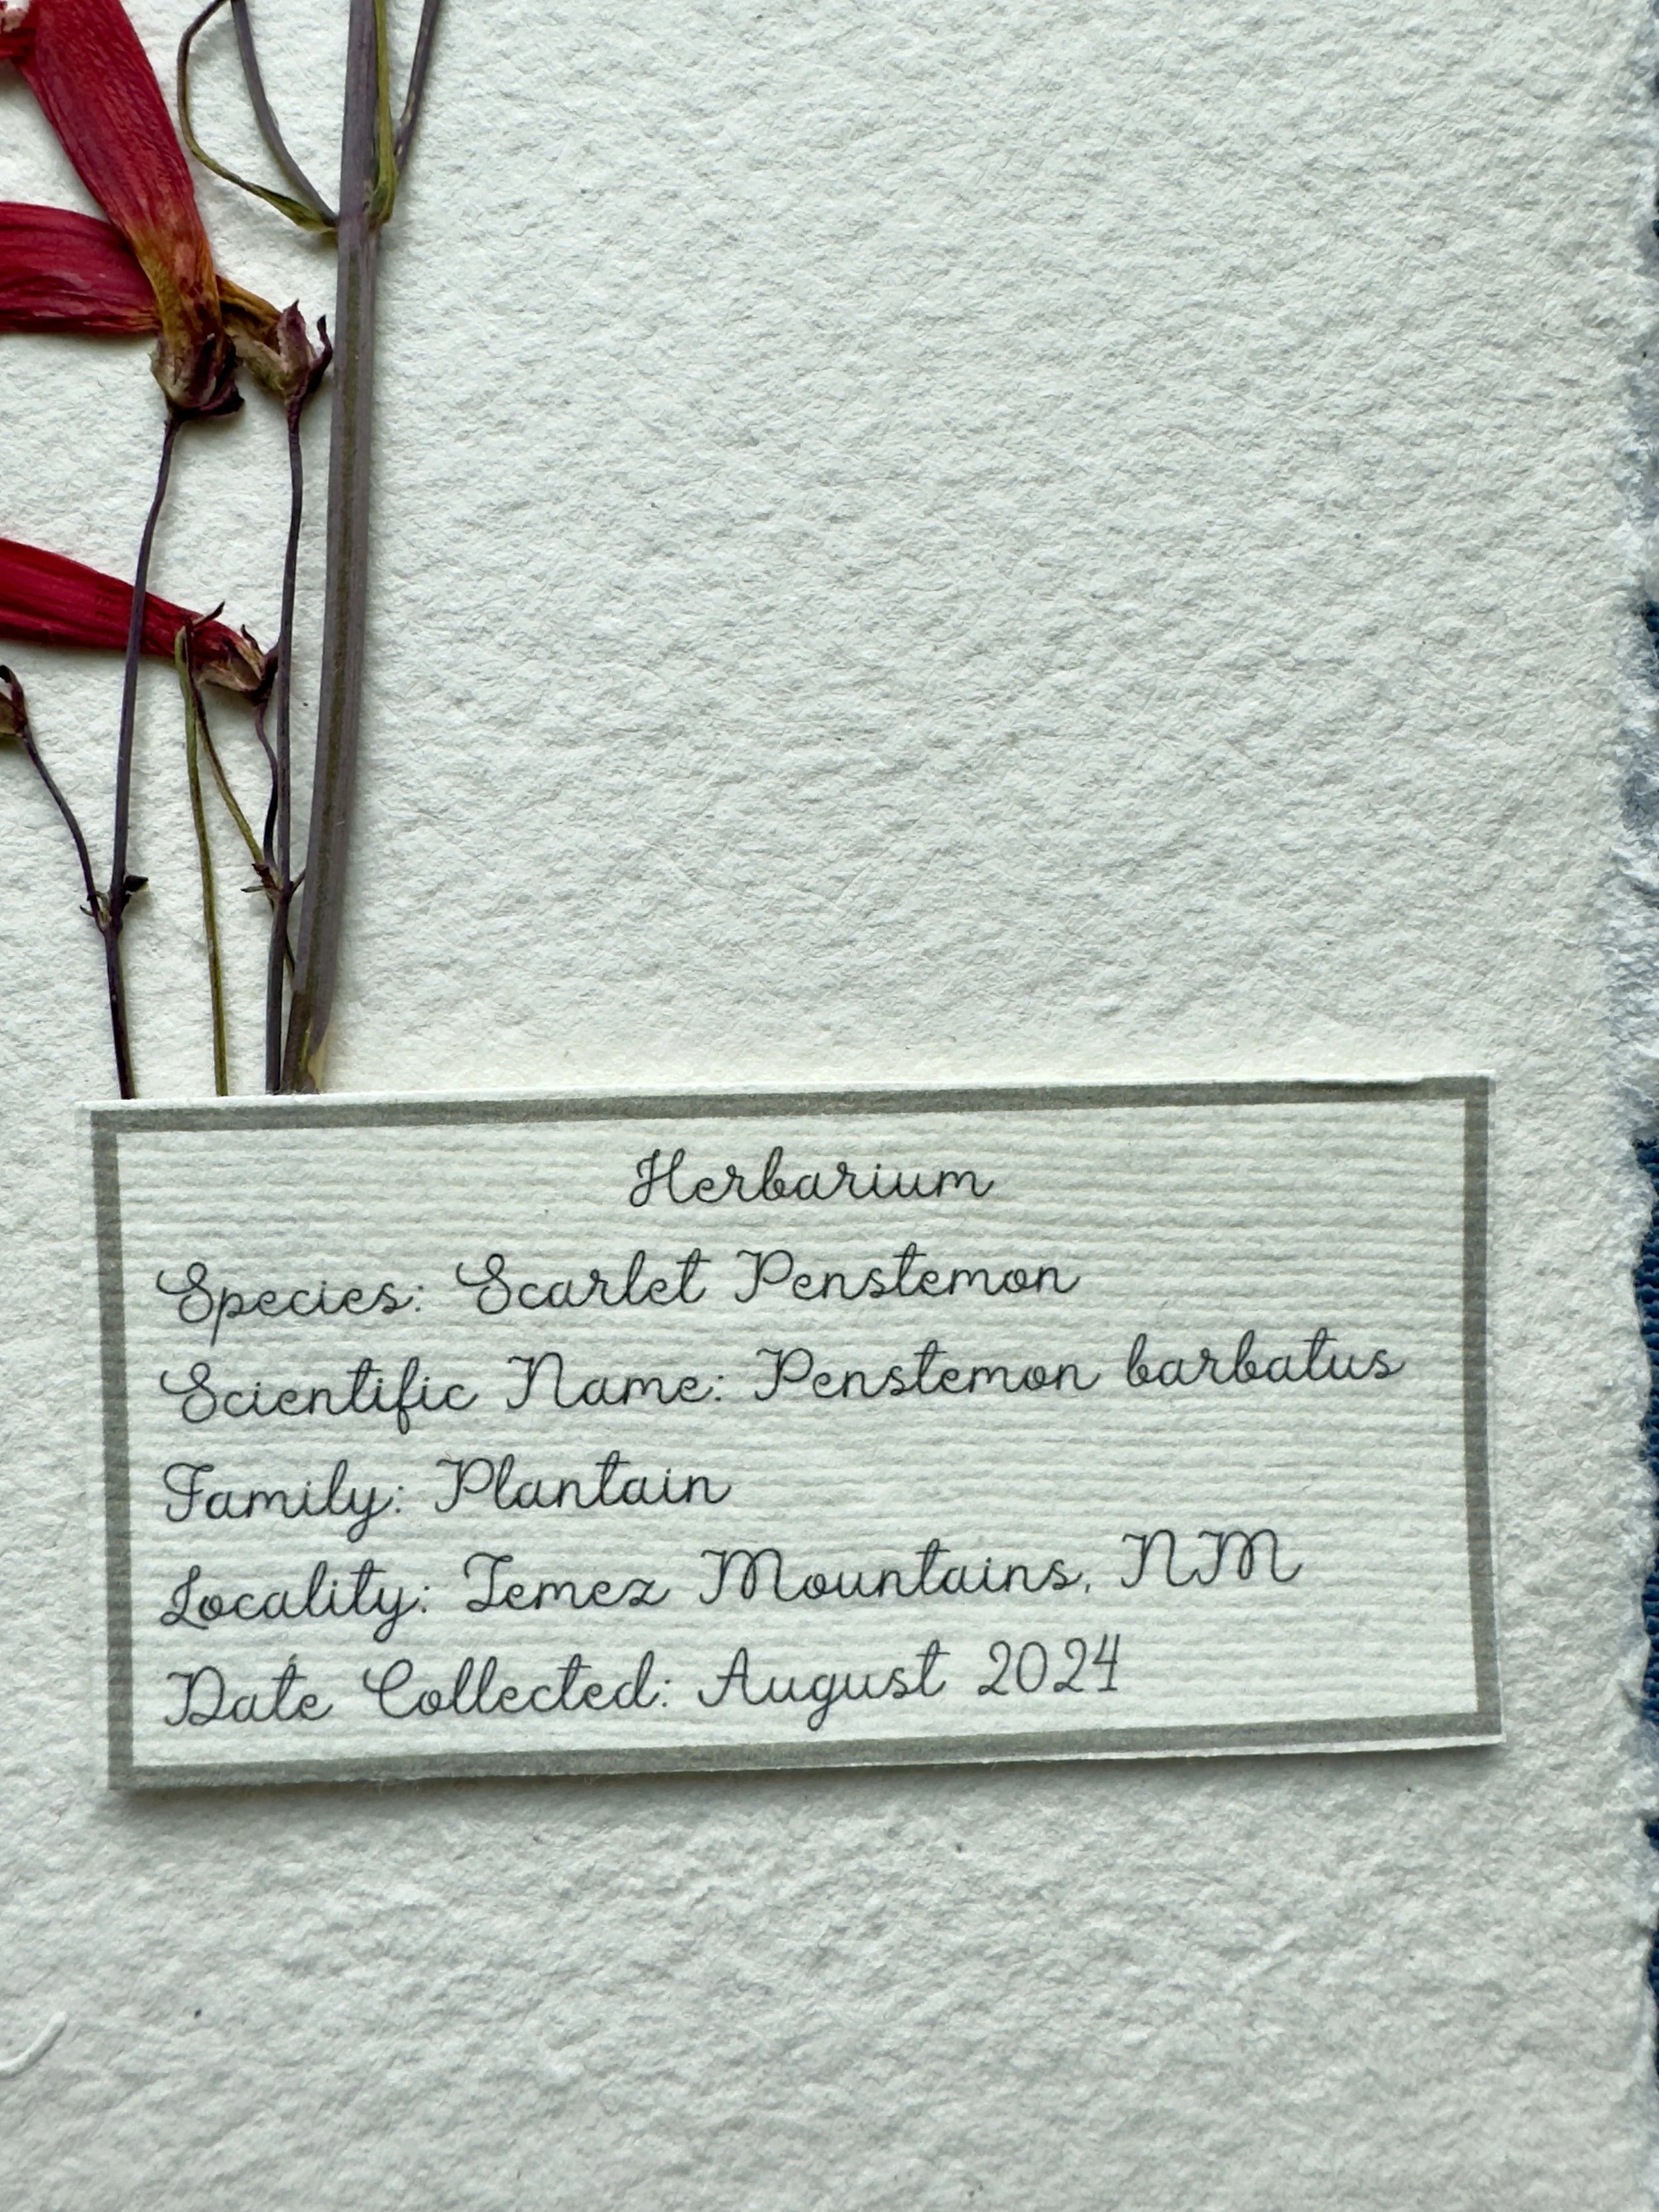 Herbarium
Species: Scarlet Penstemon
Scientific Name: Penstemon barbatus
Family: Plantain
Locality: Jemez Mountains, NM
Date Collected: August 2024